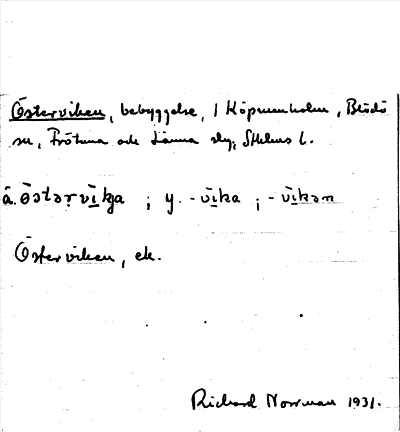 Österviken, bebyggelse, / Köpmanholm, Blidö
sn, Frötuna och Länna slg, Sthlms l.
ä. östərvı̄ka ; y. -vı̄ka ; -vı̄kən
Österviken, ek.
Richard Norrman 1931.